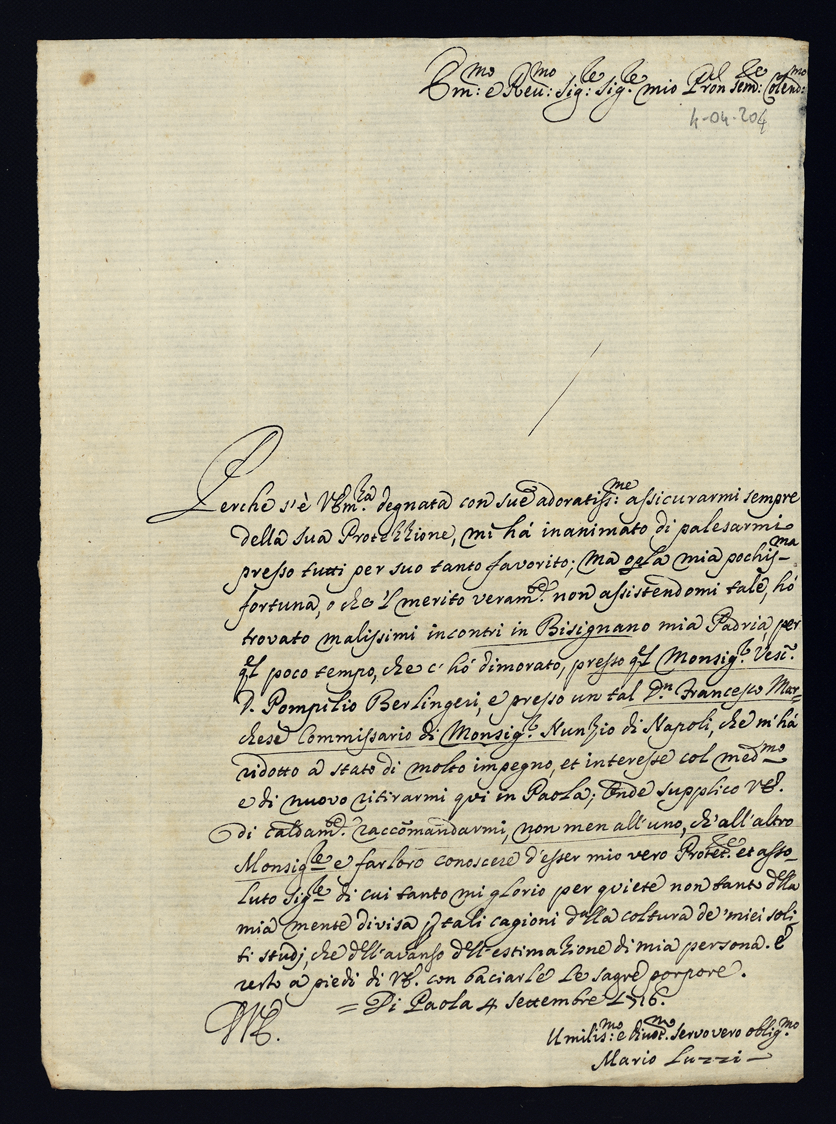 Em:mo e Reu:mo Sig:re Sig:re mio Pron sem: Colend:mo
4-04-204
Perche s'è V. Em.za degnata con sue adoratiss:me assicurarmi sempre
della sua Protezzione, mi há inanimato di palesarmi
presso tutti per suo tanto favorito; ma o la mia pochiss-ma
fortuna, o che 'l merito veram.te non assistendomi tale, hó
trovato malissimi incontri in Bisignano mia Padria, per
ql poco tempo, che c'hó dimorato, presso ql Monsig.r Vesc.
D. Pompilio Berlingeri, e presso un tal Dn Francesco Mar=
chese Commissario di Monsig.r Nunzio di Napoli, che m'há
ridotto a stato di molto impegno, et interesse col med.mo
e di nuovo ritirarmi qui in Paola; Onde supplico V. E.
di caldam.te raccomandarmi, non men all'uno, ch'all'altro
Monsig.re e far loro conoscere d'esser mio vero Protet.re et asso-
luto Sig.re di cui tanto mi glorio per quiete non tanto della
mia mente divisa p tali cagioni dalla coltura de' miei soli-
ti studj, che dell'avanso dell'estimazione di mia persona. E
resto a piedi di V. E. con baciarle le sagre porpore.
= Di Paola 4 Settembre 1716.
V. E.
Umilis:mo e Divot:mo servo vero oblig.mo
Mario Luzzi